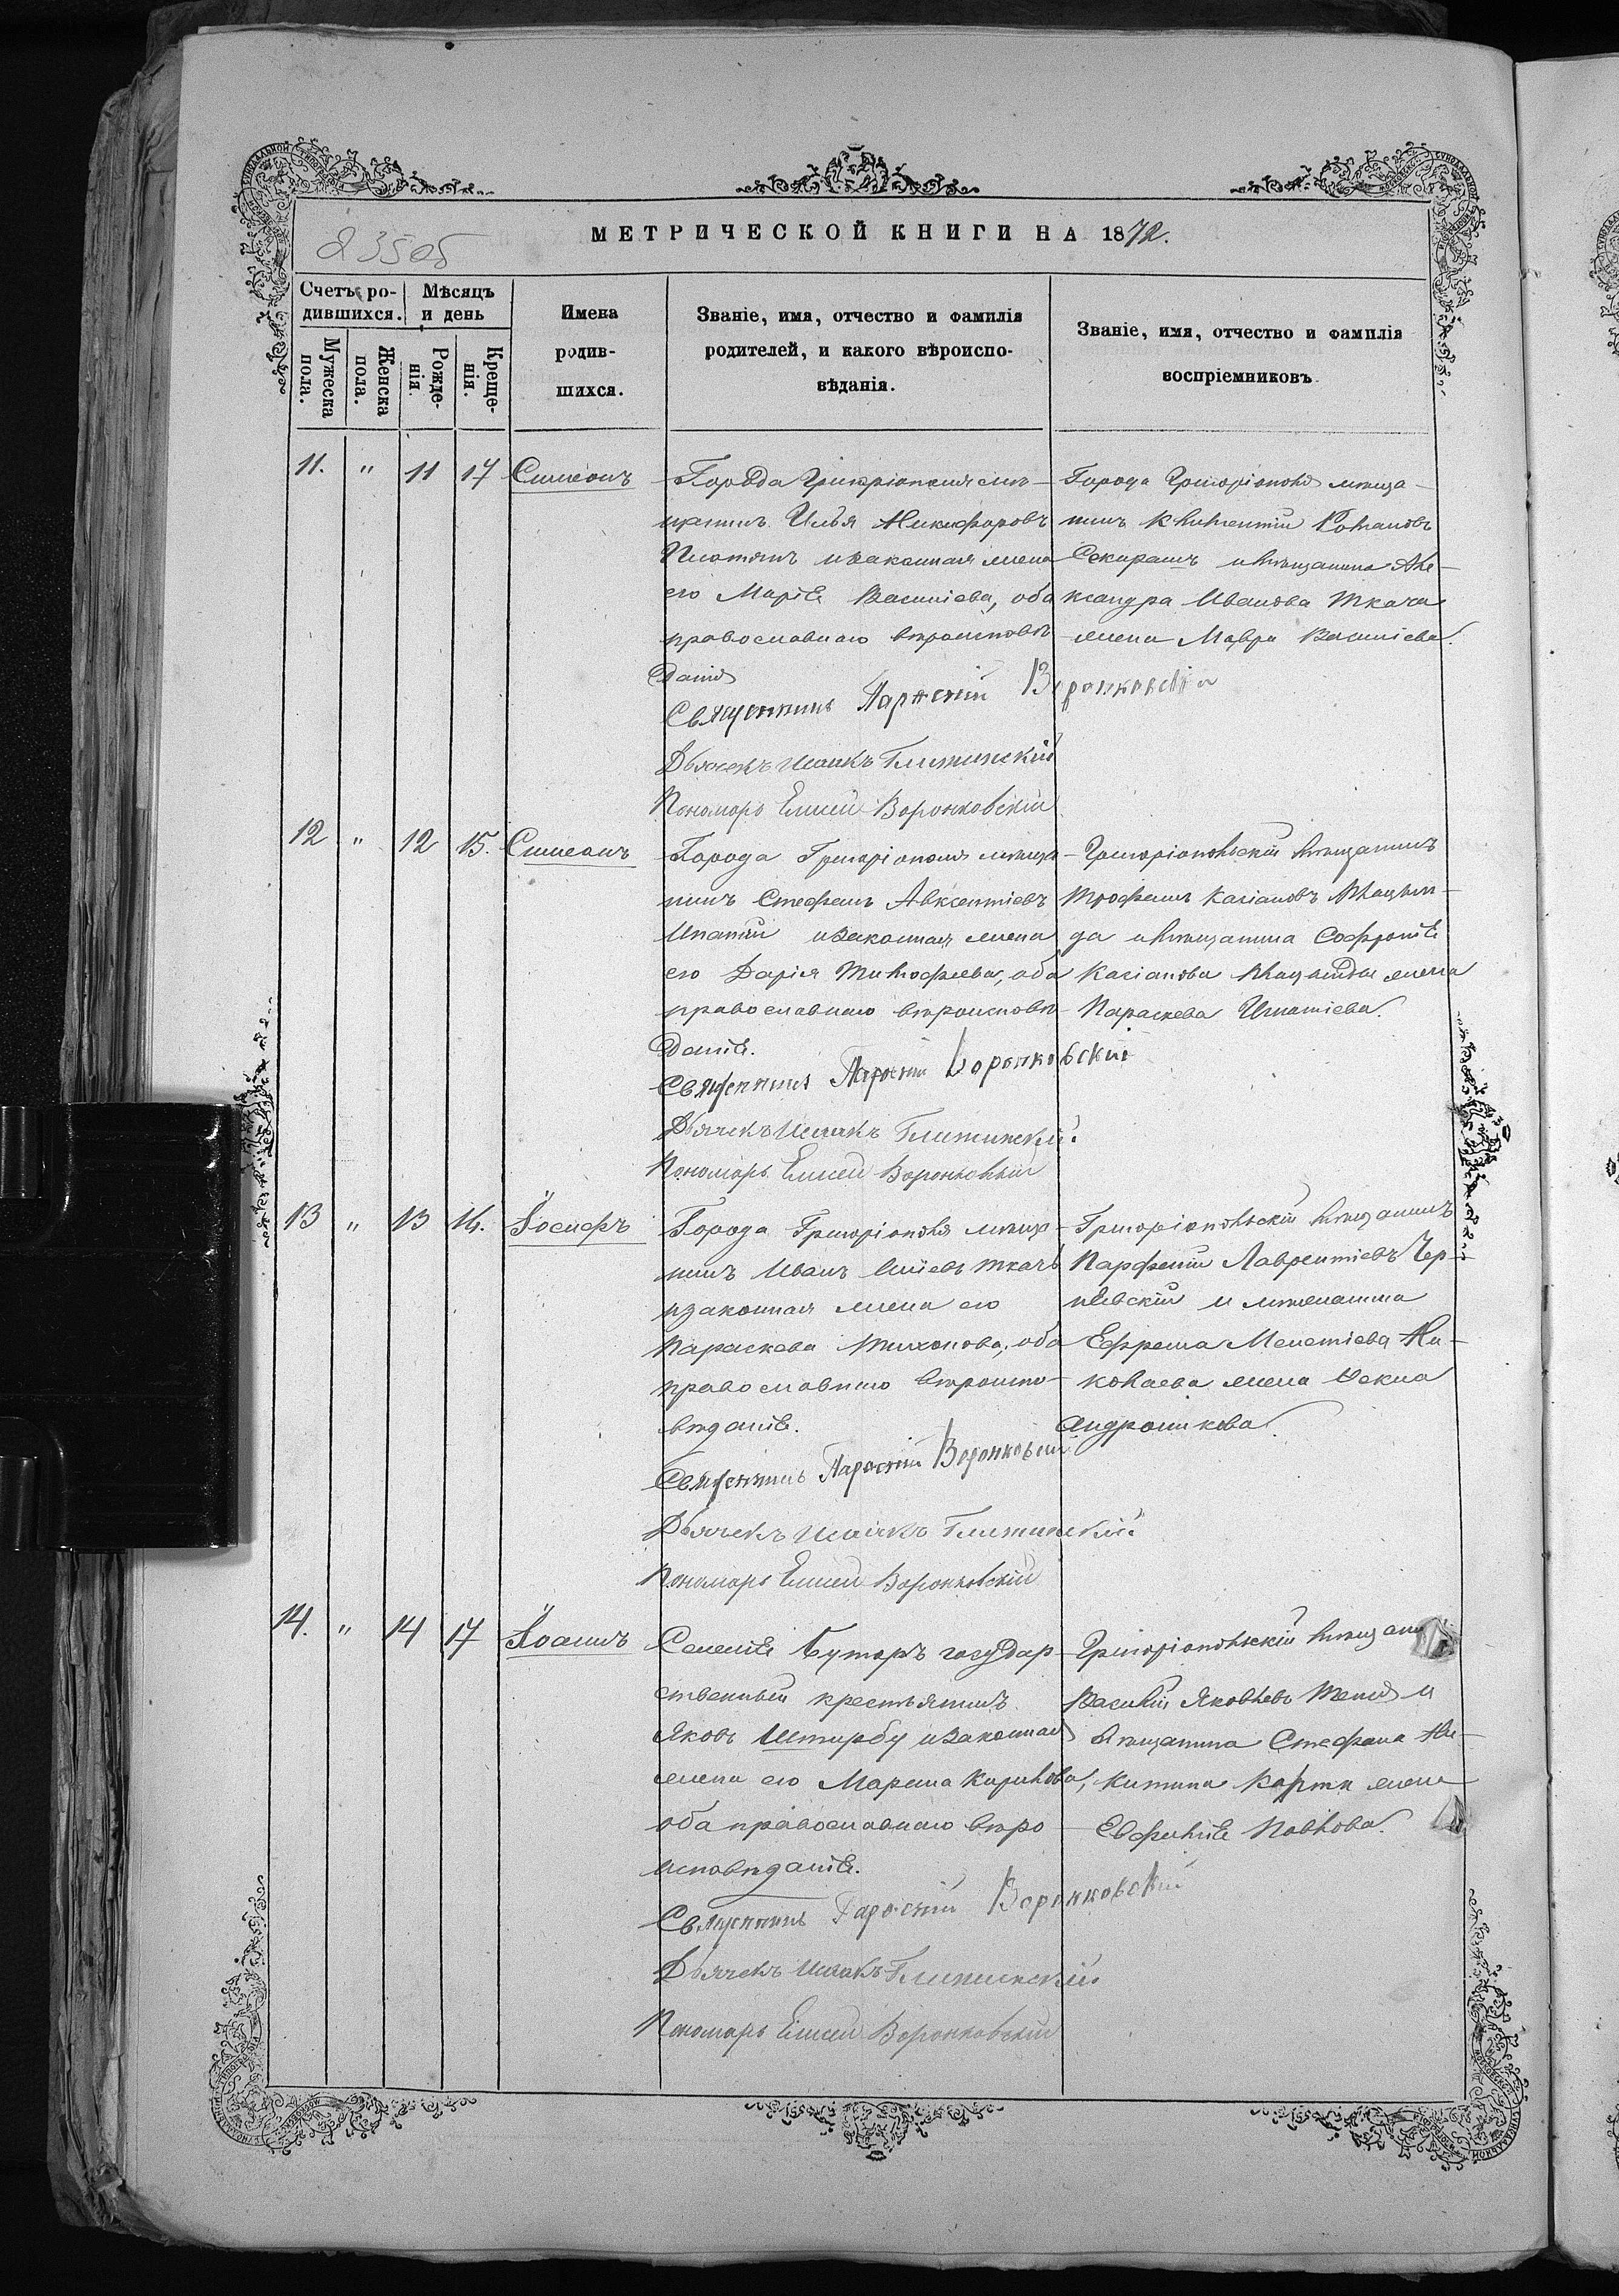 МЕТРИЧЕСКОЙ КНИГИ НА 1872.
235об
Счетъ ро-
дившихся.
Мужеска
пола.
Женска
пола.
Мѣсяцъ
и день
Рожде-
нія.
Креще-
нія.
Имена
родив-
шихся.
Званіе, имя, отчество и фамилія
родителей, и какого вѣроиспо-
вѣданія.
Званіе, имя, отчество и фамилія
воспріемниковъ
11. " 11 17 Симеонъ
Города Григоріополя мѣ-
щанинъ Илья Никифоровъ
и законная жена
его Марія Василіева, оба
православнаго вѣроисповѣ
данія
Священникъ Паросній Воронковскій
Дьячекъ Исаакъ Глижинскій
Пономарь Елисей Воронковскій
Города Григоріополя мѣща-
нинъ Климентій Романовъ
Секиранъ и мѣщанина Але-
ксандра Иванова Ткача
жена Мавра Василіева.
12 " 12 15. Симеонъ
Города Григоріополя мѣща-
нинъ Стефанъ Авксентіевъ
Игнатій и законная жена
его Дарія Тимофеева, оба
православнаго вѣроисповѣ-
данія.
Священникъ Паросній Воронковскій
Дьячекъ Исаакъ Глижинскій.
Пономарь Елисей Воронковскій
Григоріопольскій мѣщанинъ
Трофимъ Касіановъ
да и мѣщанина Софронія
Касіанова жена
Параскева Игнатіева.
13 " 13 14. Іосифъ
Города Григоріополя мѣща-
нинъ Иванъ Иліевъ Ткачъ
и законная жена его
Параскева Тихонова, оба
православнаго вѣроиспо-
вѣданія.
Священникъ Паросній Воронковскій
Дьячекъ Исаакъ Глижинскій.
Пономарь Елисей Воронковскій
Григоріопольскій мѣщанинъ
Парфеній Лаврентіевъ Чер-
невскій и мѣщанина
Ефрема Мелетіева Ни-
колаева жена Фекла
Андроникова.
14. " 14 17 Іоаннъ
Селенія Буторъ государ-
ственный крестьянинъ
Яковъ Штирбу и законная
жена его Марина Кирилова,
оба православнаго вѣро
исповѣданія.
Священникъ Паросній Воронковскій
Дьячекъ Исаакъ Глижинскій.
Пономарь Елисей Воронковскій
Григоріопольскій мѣщани
Василій Яковлевъ и
мѣщанина Стефана Ни-
китина жена
Евфимія Павлова.